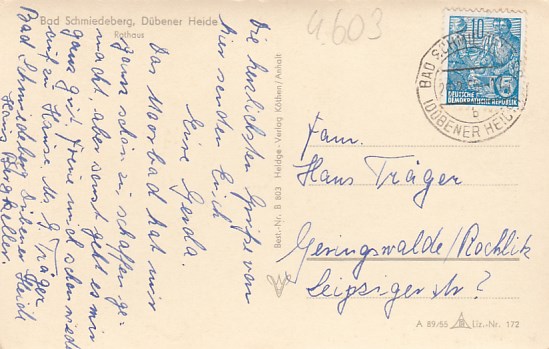 Bad Schmiedeberg, Dübener Heide
Rathaus
4.603
Die herzlichsten Grüße von
hier senden Euch
Eure Gerda.
Das Moorbad hat mir
ganz schön zu schaffen ge-
macht, aber sonst geht es mir
ganz gut. Freue mich schon wieder
auf zu Hause. G. Träger
Bad Schmiedeberg Dübener Heide
Haus
Best.-Nr. B 803 Heldge-Verlag Köthen/Anhalt
10
5
DEUTSCHE
DEMOKRATISCHE REPUBLIK
BAD
b
(DÜBENER HEIDE)
Fam.
Hans Träger
Geringswalde/Rochlitz
Leipziger Str?
A 89/55 Liz.-Nr. 172